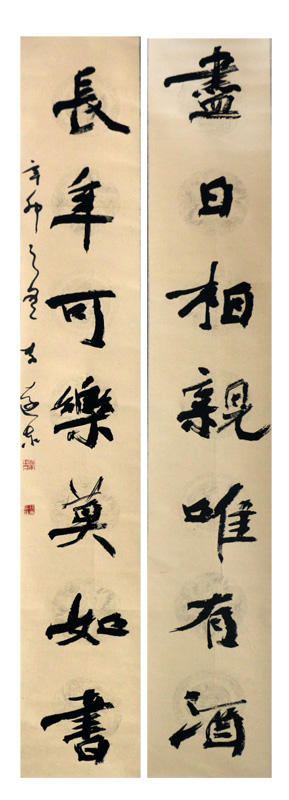 盡日相親唯有酒
長年可樂莫如書
辛卯之夏